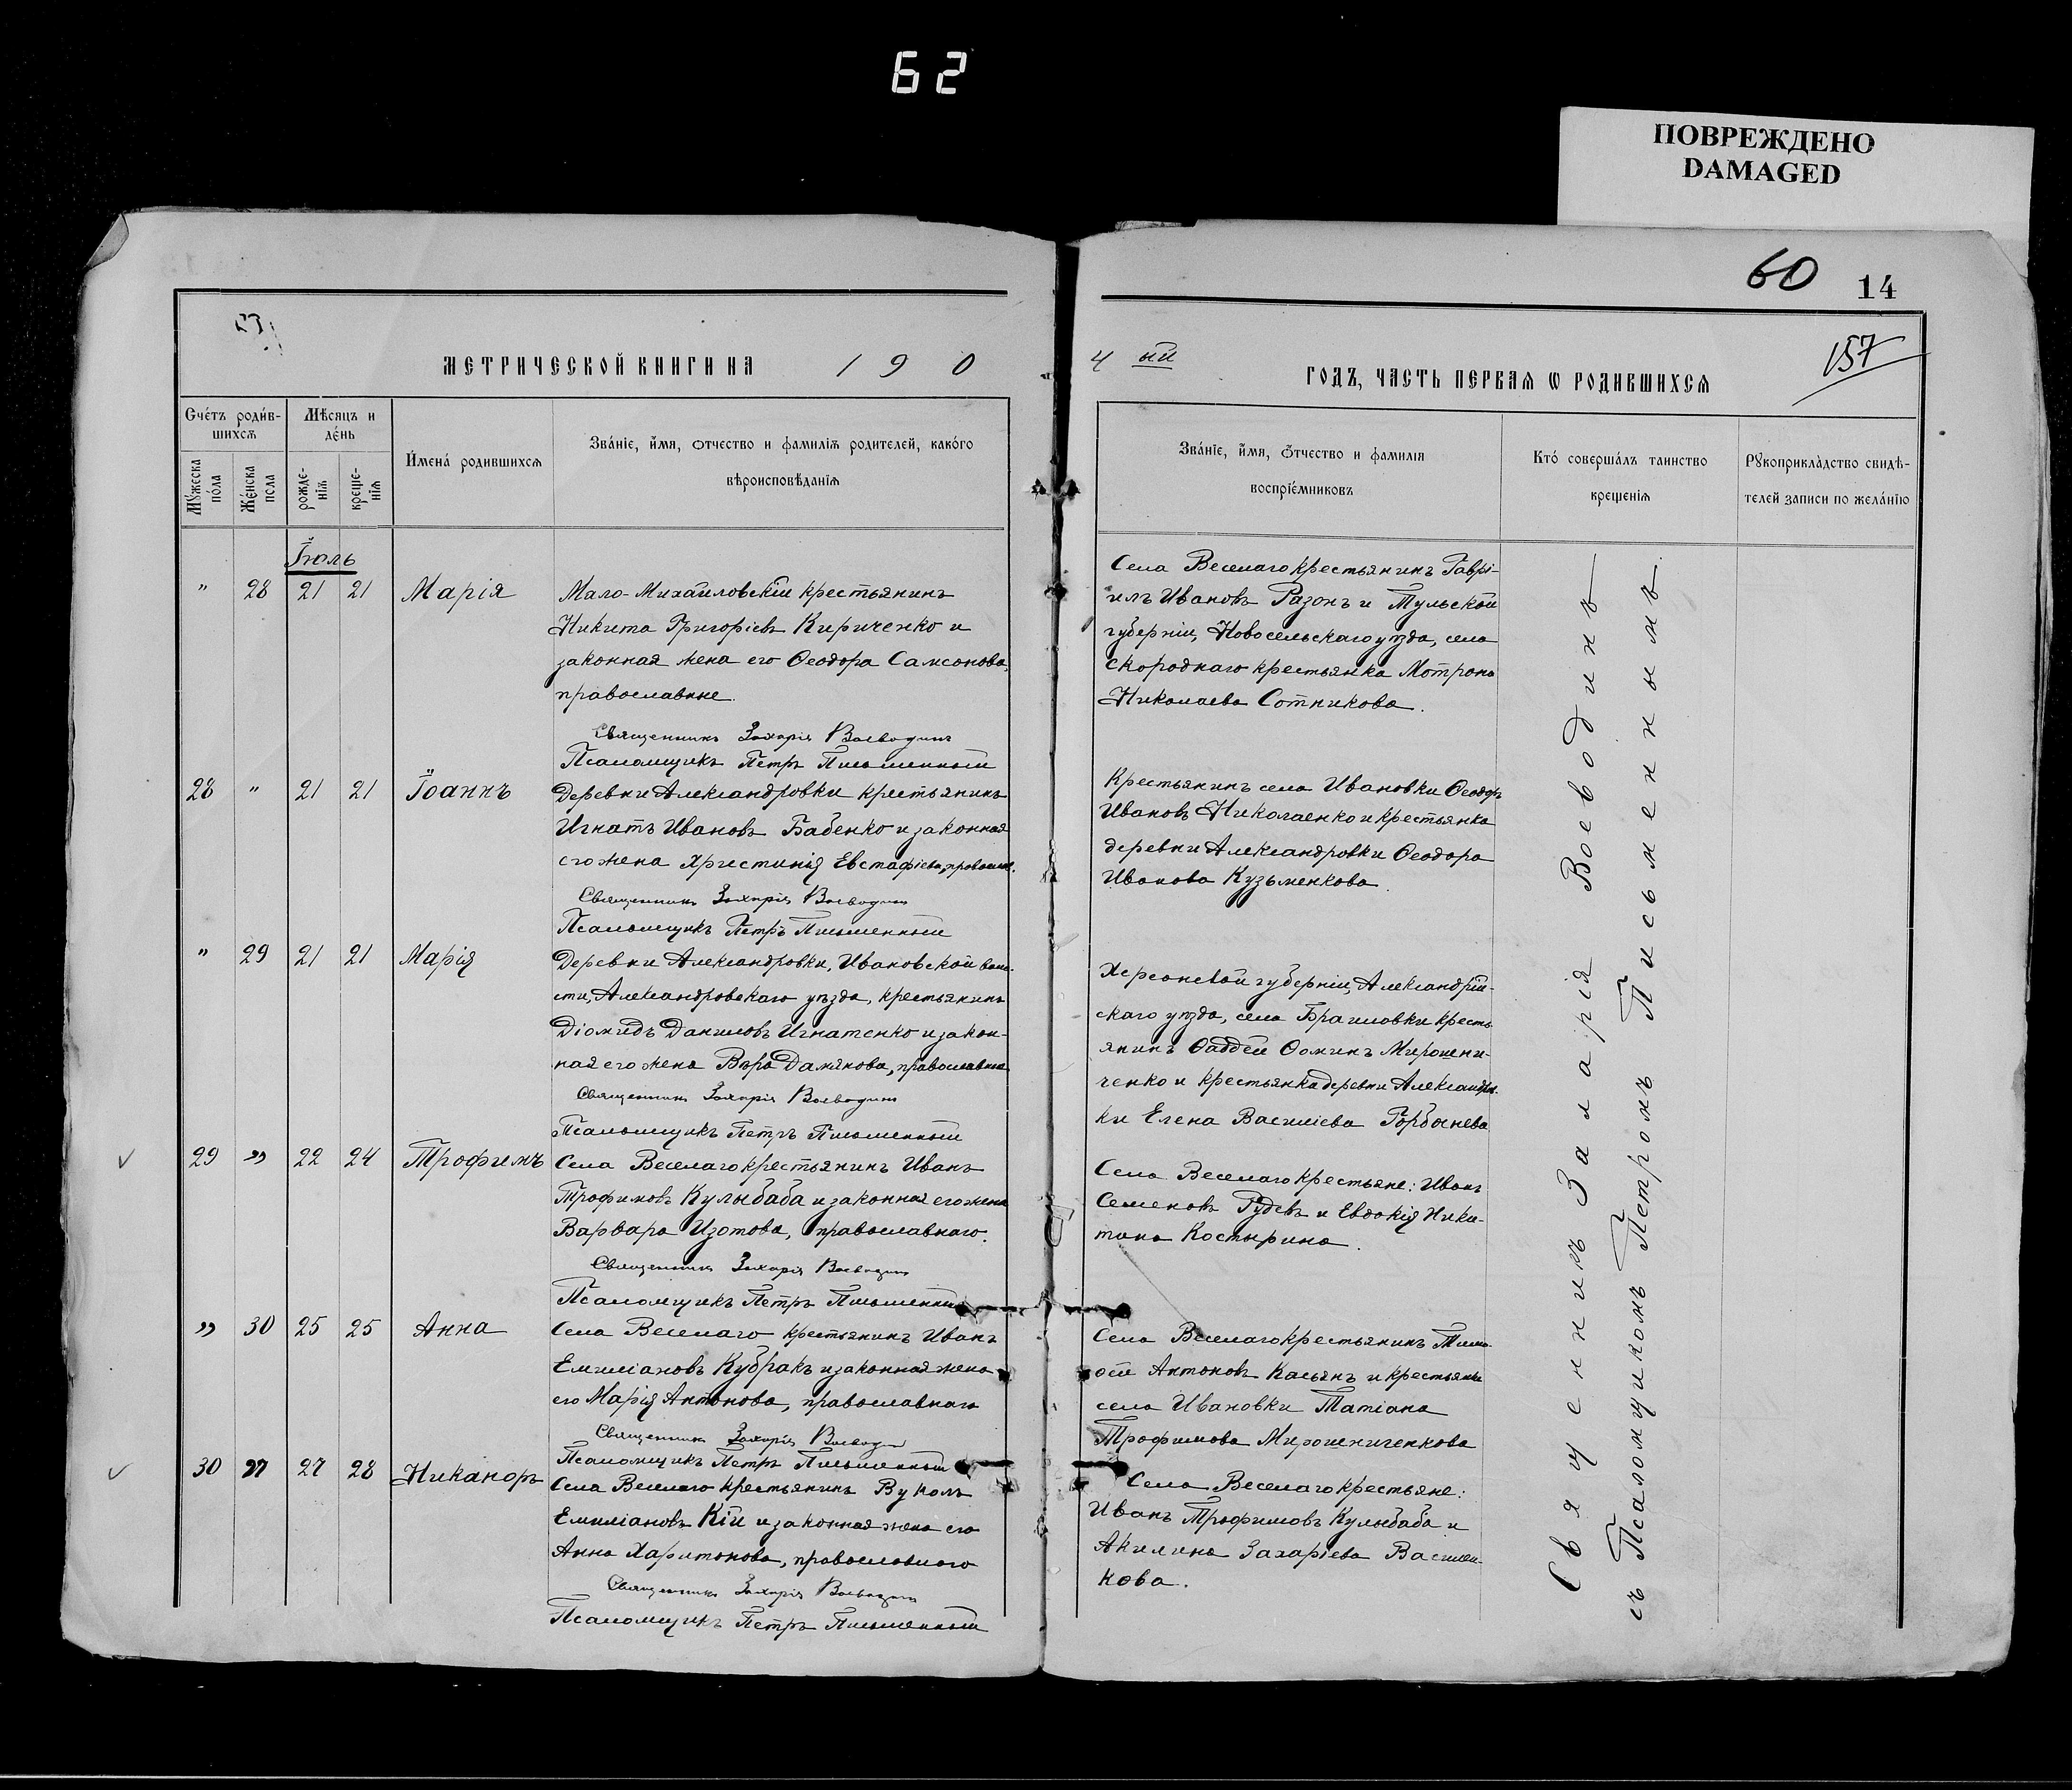 62
ПОВРЕЖДЕНО
DAMAGED
60
14
МЕТРИЧЕСКОЙ КНИГИ НА 190
4 ый
ГОДЪ, ЧАСТЬ ПЕРВАЯ Ѡ РОДИВШИХСЯ
157
Счетъ родив-
шихся
Мѣсяцъ и
день
Имена родившихся
Званіе, имя, отчество и фамилія родителей, какого
вѣроисповѣданія
Мужеска
пола
Женска
пола
рожде-
нія
креще-
нія
Званіе, имя, отчество и фамилія
воспріемниковъ
Кто совершалъ таинство
крещенія
Рукоприкладство свидѣ-
телей записи по желанію
Іюль
" 28 21 21 Марія
Мало-Михайловскій крестьянинъ
Никита Григоріевъ Кириченко и
законная жена его Ѳеодора Самсонова,
православные.
Священникъ Захарія Воеводинъ
Псаломщикъ Петръ Письменный
Села Веселаго крестьянинъ Гаврі-
илъ Ивановъ Разонъ и Тульской
губерніи, Новосельскаго уѣзда, села
Скороднаго крестьянка Мотрона
Николаева Сотникова.
28 " 21 21 Іоаннъ
Деревни Александровки крестьянинъ
Игнатъ Ивановъ Бабенко и законная
его жена Христинія Евстафіева, правосл.
Священникъ Захарія Воеводинъ
Псаломщикъ Петръ Письменный
Крестьянинъ села Ивановки Ѳеодоръ
Ивановъ Николаенко и крестьянка
деревни Александровки Ѳеодора
Иванова Кузьменкова.
" 29 21 21 Марія
Деревни Александровки, Ивановской воло-
сти, Александровскаго уѣзда, крестьянинъ
Діомидъ Даниловъ Игнатенко и закон-
ная его жена Вѣра Дамянова, православные
Священникъ Захарія Воеводинъ
Псаломщикъ Петръ Письменный
Херсонской губерніи, Александрій-
скаго уѣзда, села Браиловки кресть-
янинъ Ѳаддей Ѳоминъ Мирошни-
ченко и крестьянка деревни Александров-
ки Елена Василіева Горбанева
29 " 22 24 Трофимъ
Села Веселаго крестьянинъ Иванъ
Трофимовъ Кулыбаба и законная его жена
Варвара Изотова, православнаго.
Священникъ Захарія Воеводинъ
Псаломщикъ Петръ Письменный
Села Веселаго крестьяне: Иванъ
Семеновъ Гудевъ и Евдокія Ники-
тина Костырина.
" 30 25 25 Анна
Села Веселаго крестьянинъ Иванъ
Емиліановъ Кубракъ и законная жена
его Марія Антонова, православнаго
Священникъ Захарія Воеводинъ
Псаломщикъ Петръ Письменный
Села Веселаго крестьянинъ Тимо-
ѳей Антоновъ Касьянъ и крестьянка
села Ивановки Татіана
Трофимова Мирошниченкова
30 " 27 28 Никаноръ
Села Веселаго крестьянинъ Вуколъ
Емиліановъ Кій и законная жена его
Анна Харитонова, православнаго
Священникъ Захарія Воеводинъ
Псаломщикъ Петръ Письменный
Села Веселаго крестьяне:
Иванъ Трофимовъ Кулыбаба и
Акилина Захаріева Василь-
кова.
Священникъ Захарія Воеводинъ
съ Псаломщикомъ Петромъ Письменнымъ.